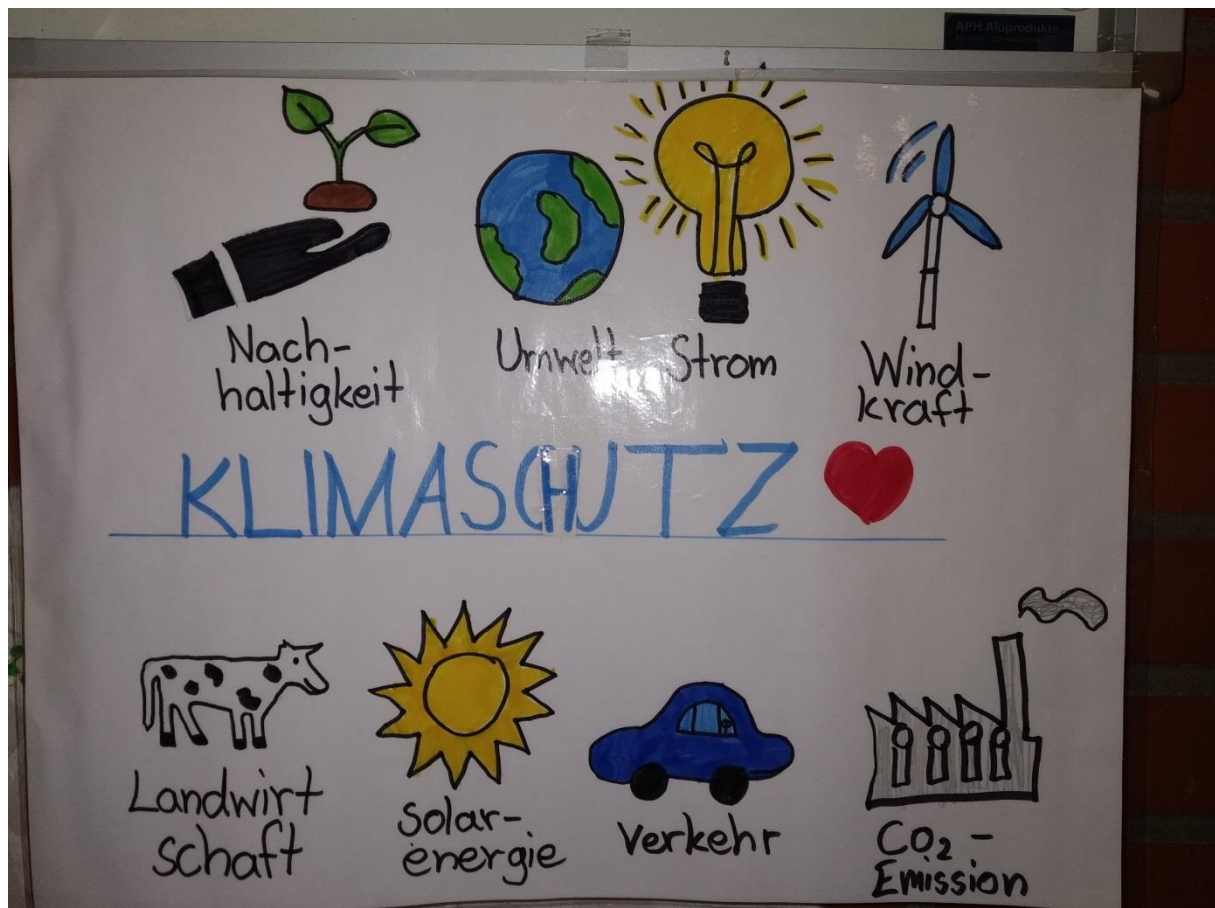 APH Aluprodukte
Nach-
haltigkeit
Umwelt
Strom
Wind-
kraft
KLIMASCHUTZ
Landwirt
schaft
Solar-
energie
Verkehr
CO₂-
Emission